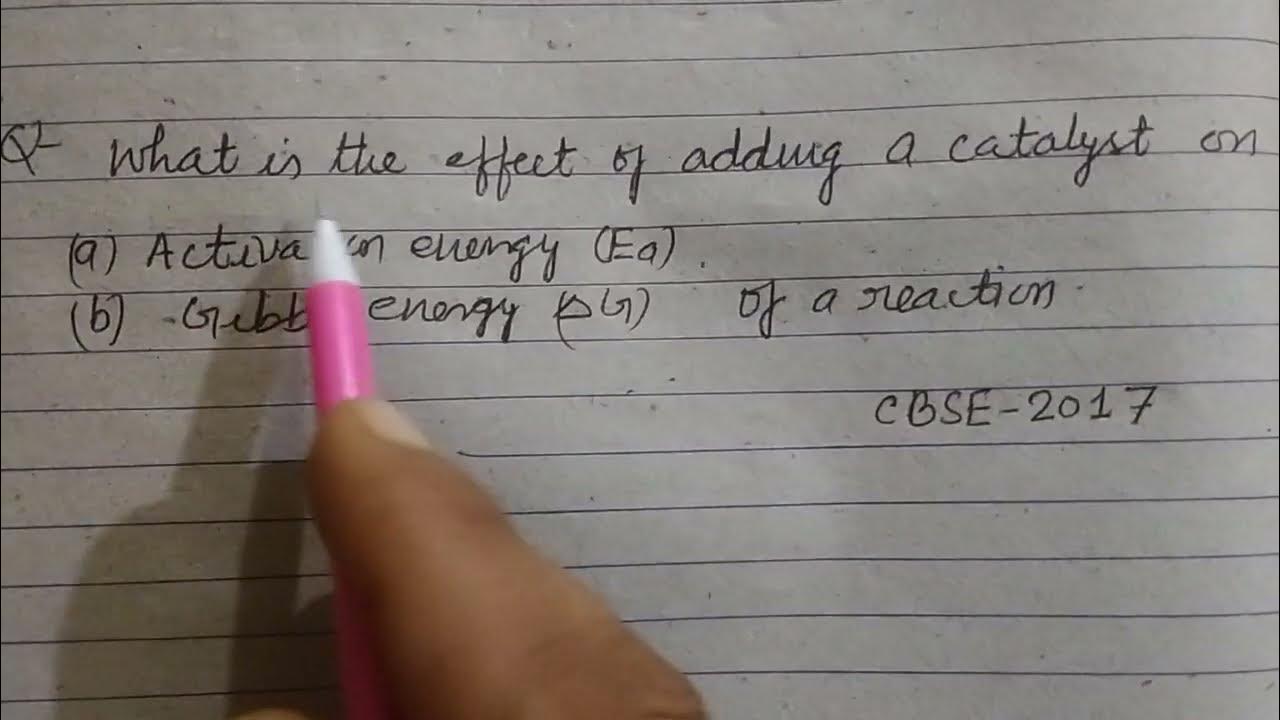 Q- What is the effect of adding a catalyst on
(a) Activa on energy (Ea).
(b) Gibb energy (ΔG) of a reaction.
CBSE-2017